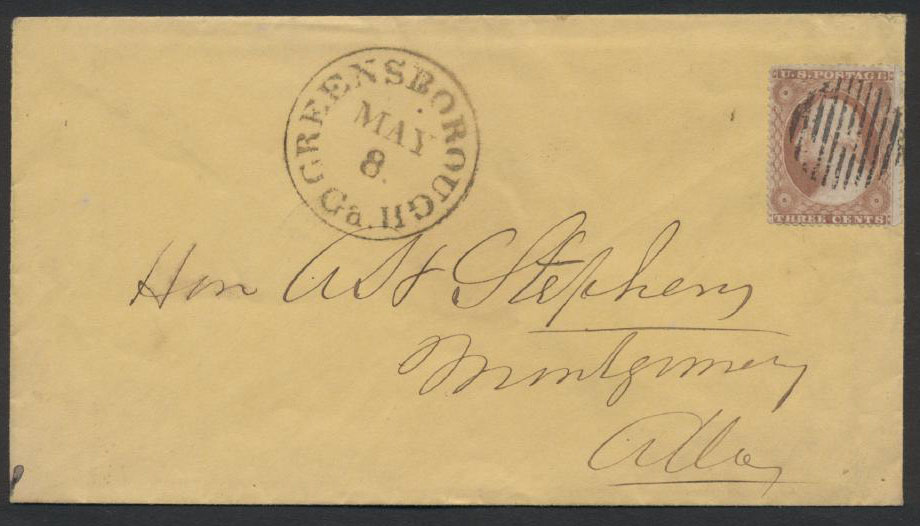 GREENSBOROUGH Ga.
MAY
8.
U.S. POSTAGE
THREE CENTS
Hon A H Stephens
Montgomery
Ala